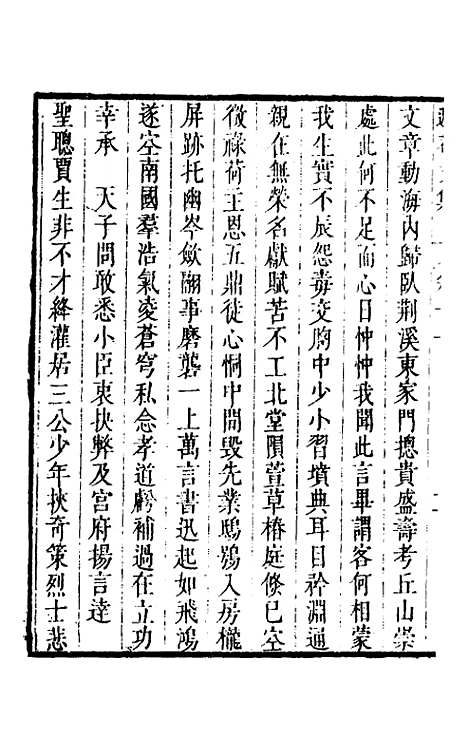 文章動海內歸臥荆溪東家門摠貴盛壽考丘山崇
處此何不足面心日忡忡我聞此言畢謂客何相蒙
我生實不辰怨毒交胷中少小習墳典耳目幹淵通
親在無榮名獻賦苦不工北堂隕萱草椿庭倐已空
微祿荷主恩五鼎徒心恫中間毀先業鴟鴞入房櫳
屏跡托幽岑斂翮事磨礱一上萬言書迅起如飛鴻
遂空南國羣浩氣凌蒼穹私念孝道虧補過在立功
幸承　天子問敢悉小臣衷抉弊及宮府揚言達
聖聰賈生非不才絳灌居三公少年挾奇策烈士悲